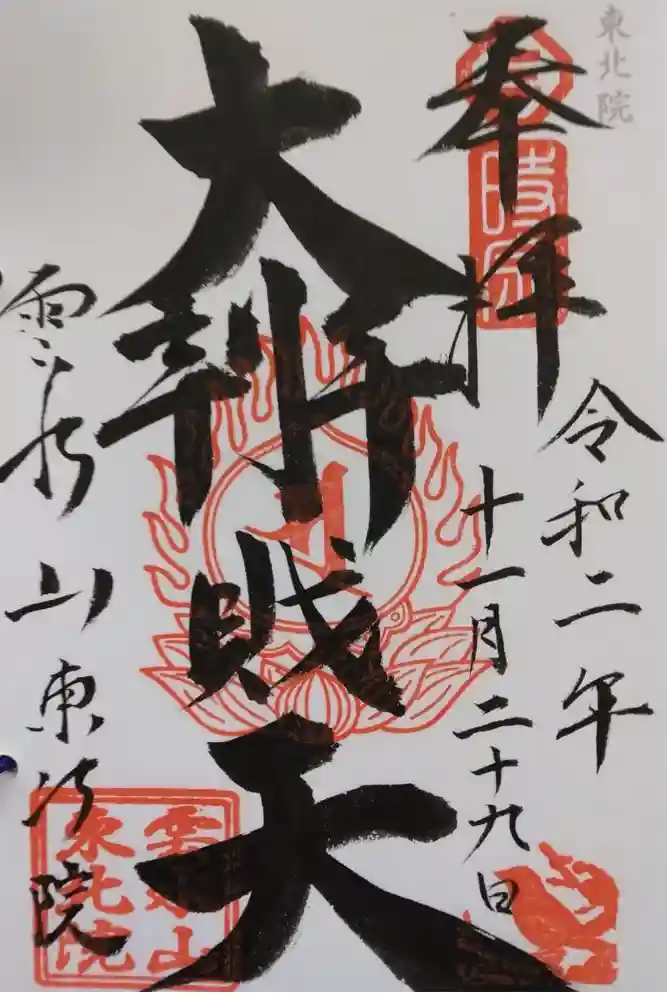 東北院
奉拝
時宗
令和二年
十一月二十九日
大辨財天
雲水山東北院
雲水山
東北院